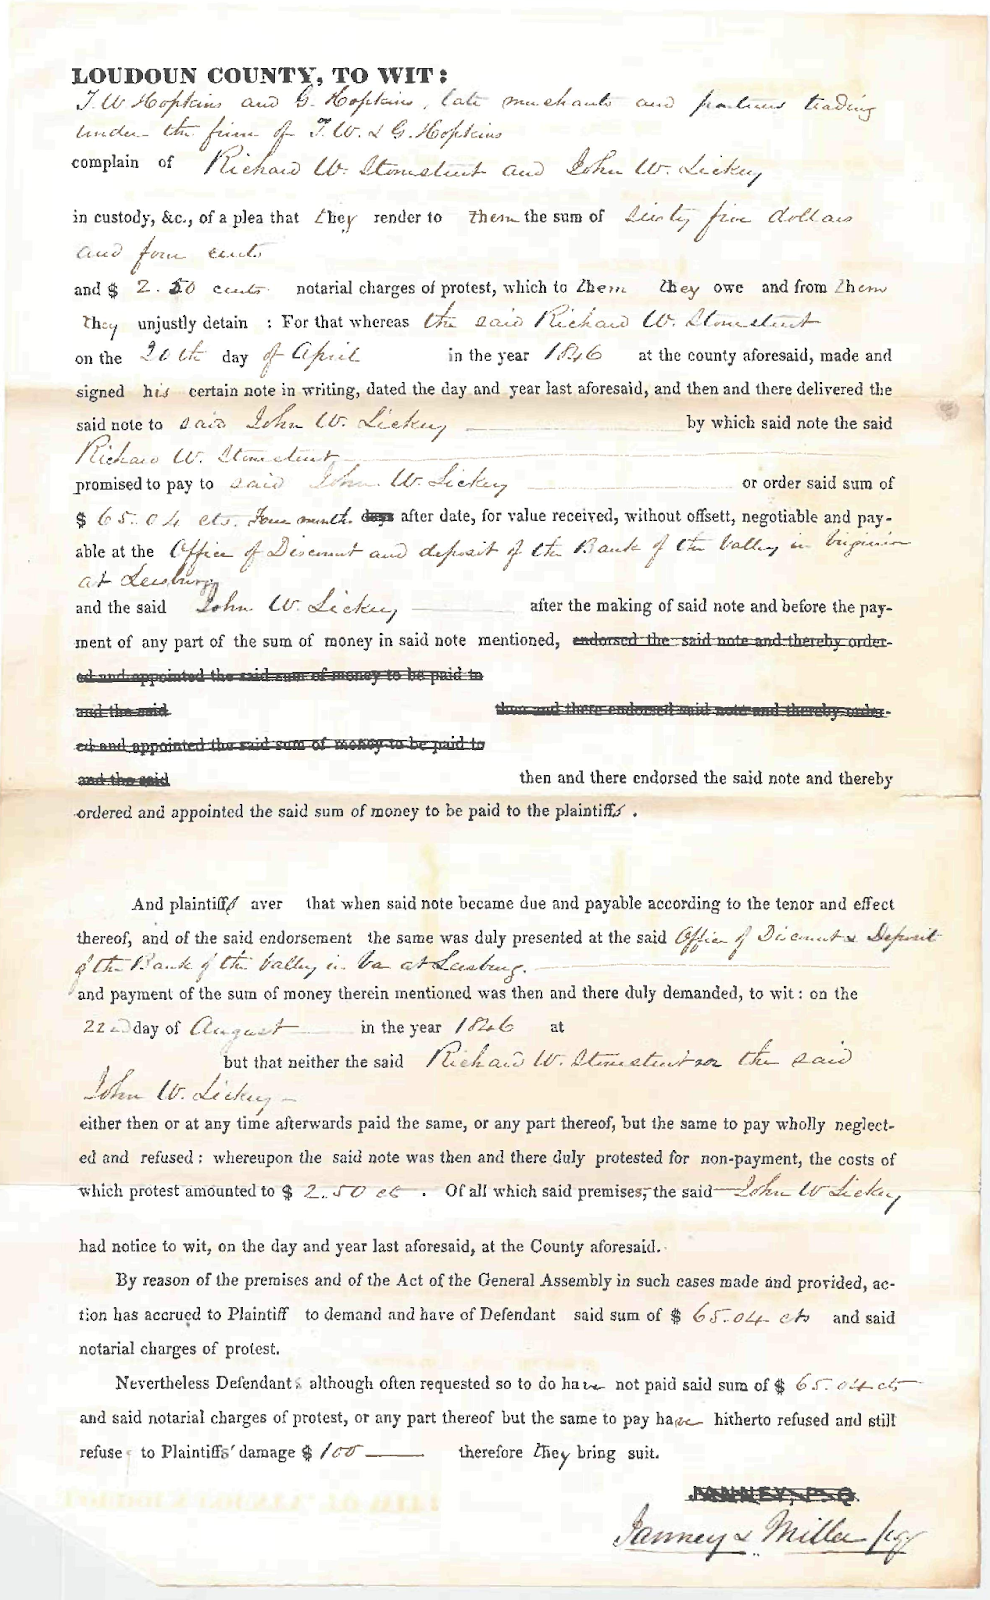 LOUDOUN COUNTY, TO WIT:
T. W Hopkins and G. Hopkins, late merchants and partners trading
under the firm of T. W. & G. Hopkins
complain of Richard W. Stonestreet and John W. Lickey
in custody, &c., of a plea that they render to them the sum of sixty five dollars
and four cents
and $ 2.50 cents notarial charges of protest, which to them they owe and from them
they unjustly detain : For that whereas the said Richard W. Stonestreet
on the 20th day of April in the year 1846 at the county aforesaid, made and
signed his certain note in writing, dated the day and year last aforesaid, and then and there delivered the
said note to said John W. Lickey by which said note the said
Richard W. Stonestreet
promised to pay to said John. W. Lickey or order said sum of
$ 65.04 cts. Four month days after date, for value received, without offsett, negotiable and pay-
able at the Office of Discount and deposit of the Bank of the Valley in Virginia
at Leesburg
and the said John. W. Lickey after the making of said note and before the pay-
ment of any part of the sum of money in said note mentioned, endorsed the said note and thereby order-
ed and appointed the said sum of money to be paid to
and the said then and there endorsed said note and thereby order-
ed and appointed the said sum of money to be paid to
and the said then and there endorsed the said note and thereby
ordered and appointed the said sum of money to be paid to the plaintiffs .
And plaintiffs aver that when said note became due and payable according to the tenor and effect
thereof, and of the said endorsement the same was duly presented at the said Office of Discount & Deposit
of the Bank of the Valley in Va at Leesburg.
and payment of the sum of money therein mentioned was then and there duly demanded, to wit: on the
22nd day of August in the year 1846 at
but that neither the said Richard W. Stonestreet nor the said
John W. Lickey
either then or at any time afterwards paid the same, or any part thereof, but the same to pay wholly neglect-
ed and refused: whereupon the said note was then and there duly protested for non-payment, the costs of
which protest amounted to $ 2.50 ct . Of all which said premises, the said John W Lickey
had notice to wit, on the day and year last aforesaid, at the County aforesaid.
By reason of the premises and of the Act of the General Assembly in such cases made and provided, ac-
tion has accrued to Plaintiff to demand and have of Defendant said sum of $ 65.04 cts and said
notarial charges of protest.
Nevertheless Defendants although often requested so to do have not paid said sum of $ 65.04 ct
and said notarial charges of protest, or any part thereof but the same to pay have hitherto refused and still
refuse to Plaintiffs' damage $ 100 therefore they bring suit.
JANNEY, P. Q.
Janney & Miller pq